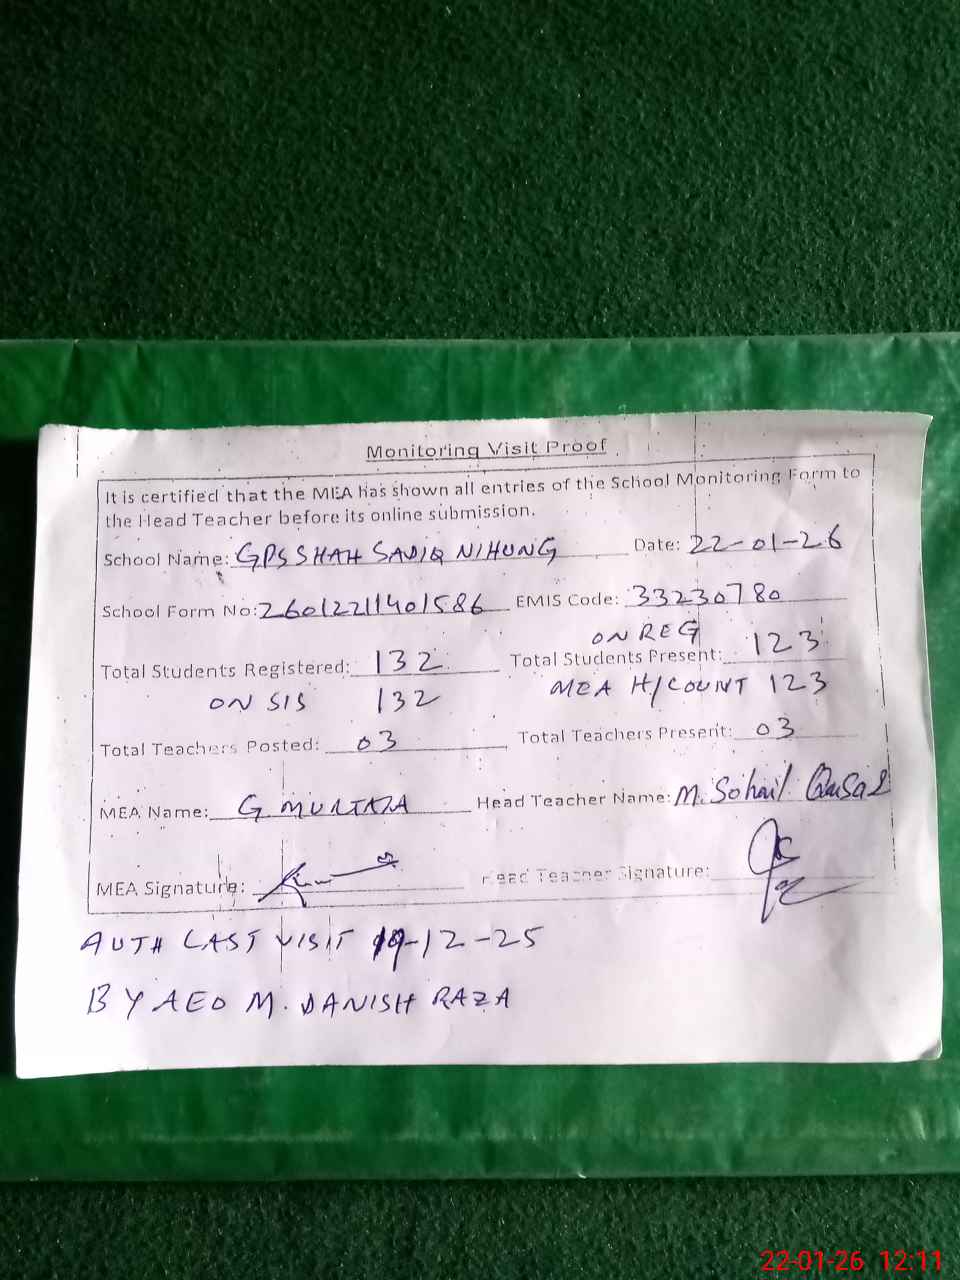 Monitoring Visit Proof
It is certified that the MEA has shown all entries of the School Monitoring Form to
the Head Teacher before its online submission.
School Name: GPS SHAH SADIQ NIHUNG Date: 22-01-26
School Form No: 26012211401586 EMIS Code: 33230780
ON REG
Total Students Registered: 132 Total Students Present: 123
ON SIS 132 MEA H/COUNT 123
Total Teachers Posted: 03 Total Teachers Present: 03
MEA Name: G MURTAZA Head Teacher Name: M. Sohail
MEA Signature: Head Teacher Signature:
AUTH LAST VISIT 19-12-25
BY AEO M. DANISH RAZA
22-01-26 12:11